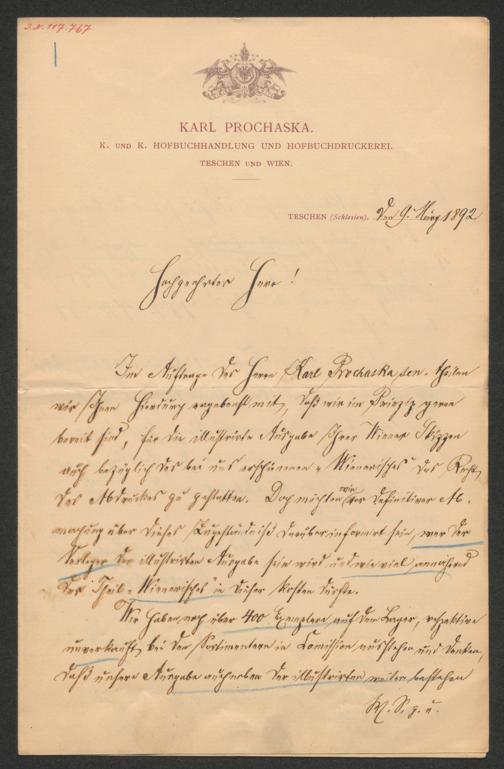 J.N. 117.767
KARL PROCHASKA.
K. UND K. HOFBUCHHANDLUNG UND HOFBUCHDRUCKEREI.
TESCHEN UND WIEN.
TESCHEN (Schlesien), den 9. März 1892
Hochgeehrter Herr!
Im Auftrage des Herrn Karl Prochaska sen. theilen
wir Ihnen hierdurch ergebenst mit, daß wir im Prinzip gerne
bereit sind, für die illustrirte Ausgabe Ihrer Wiener Skizzen
auch bezüglich des bei uns erschienenen „Wienerisches" das Recht
des Abdruckes zu gestatten. Doch möchten wir vor definitiver Ab-
machung über dieses Zugeständniß darüber informirt sein, wer der
Verleger der illustrirten Ausgabe sein wird und wie viel annähernd
der Theil „Wienerisches" in dieser kosten dürfte.
Wir haben noch über 400 Exemplare auf dem Lager, respektive
unverkauft bei den Sortimentern in Comission ausstehen und denken,
daß unsere Ausgabe auch neben der illustrirten weiter bestehen
W. S. g. u.